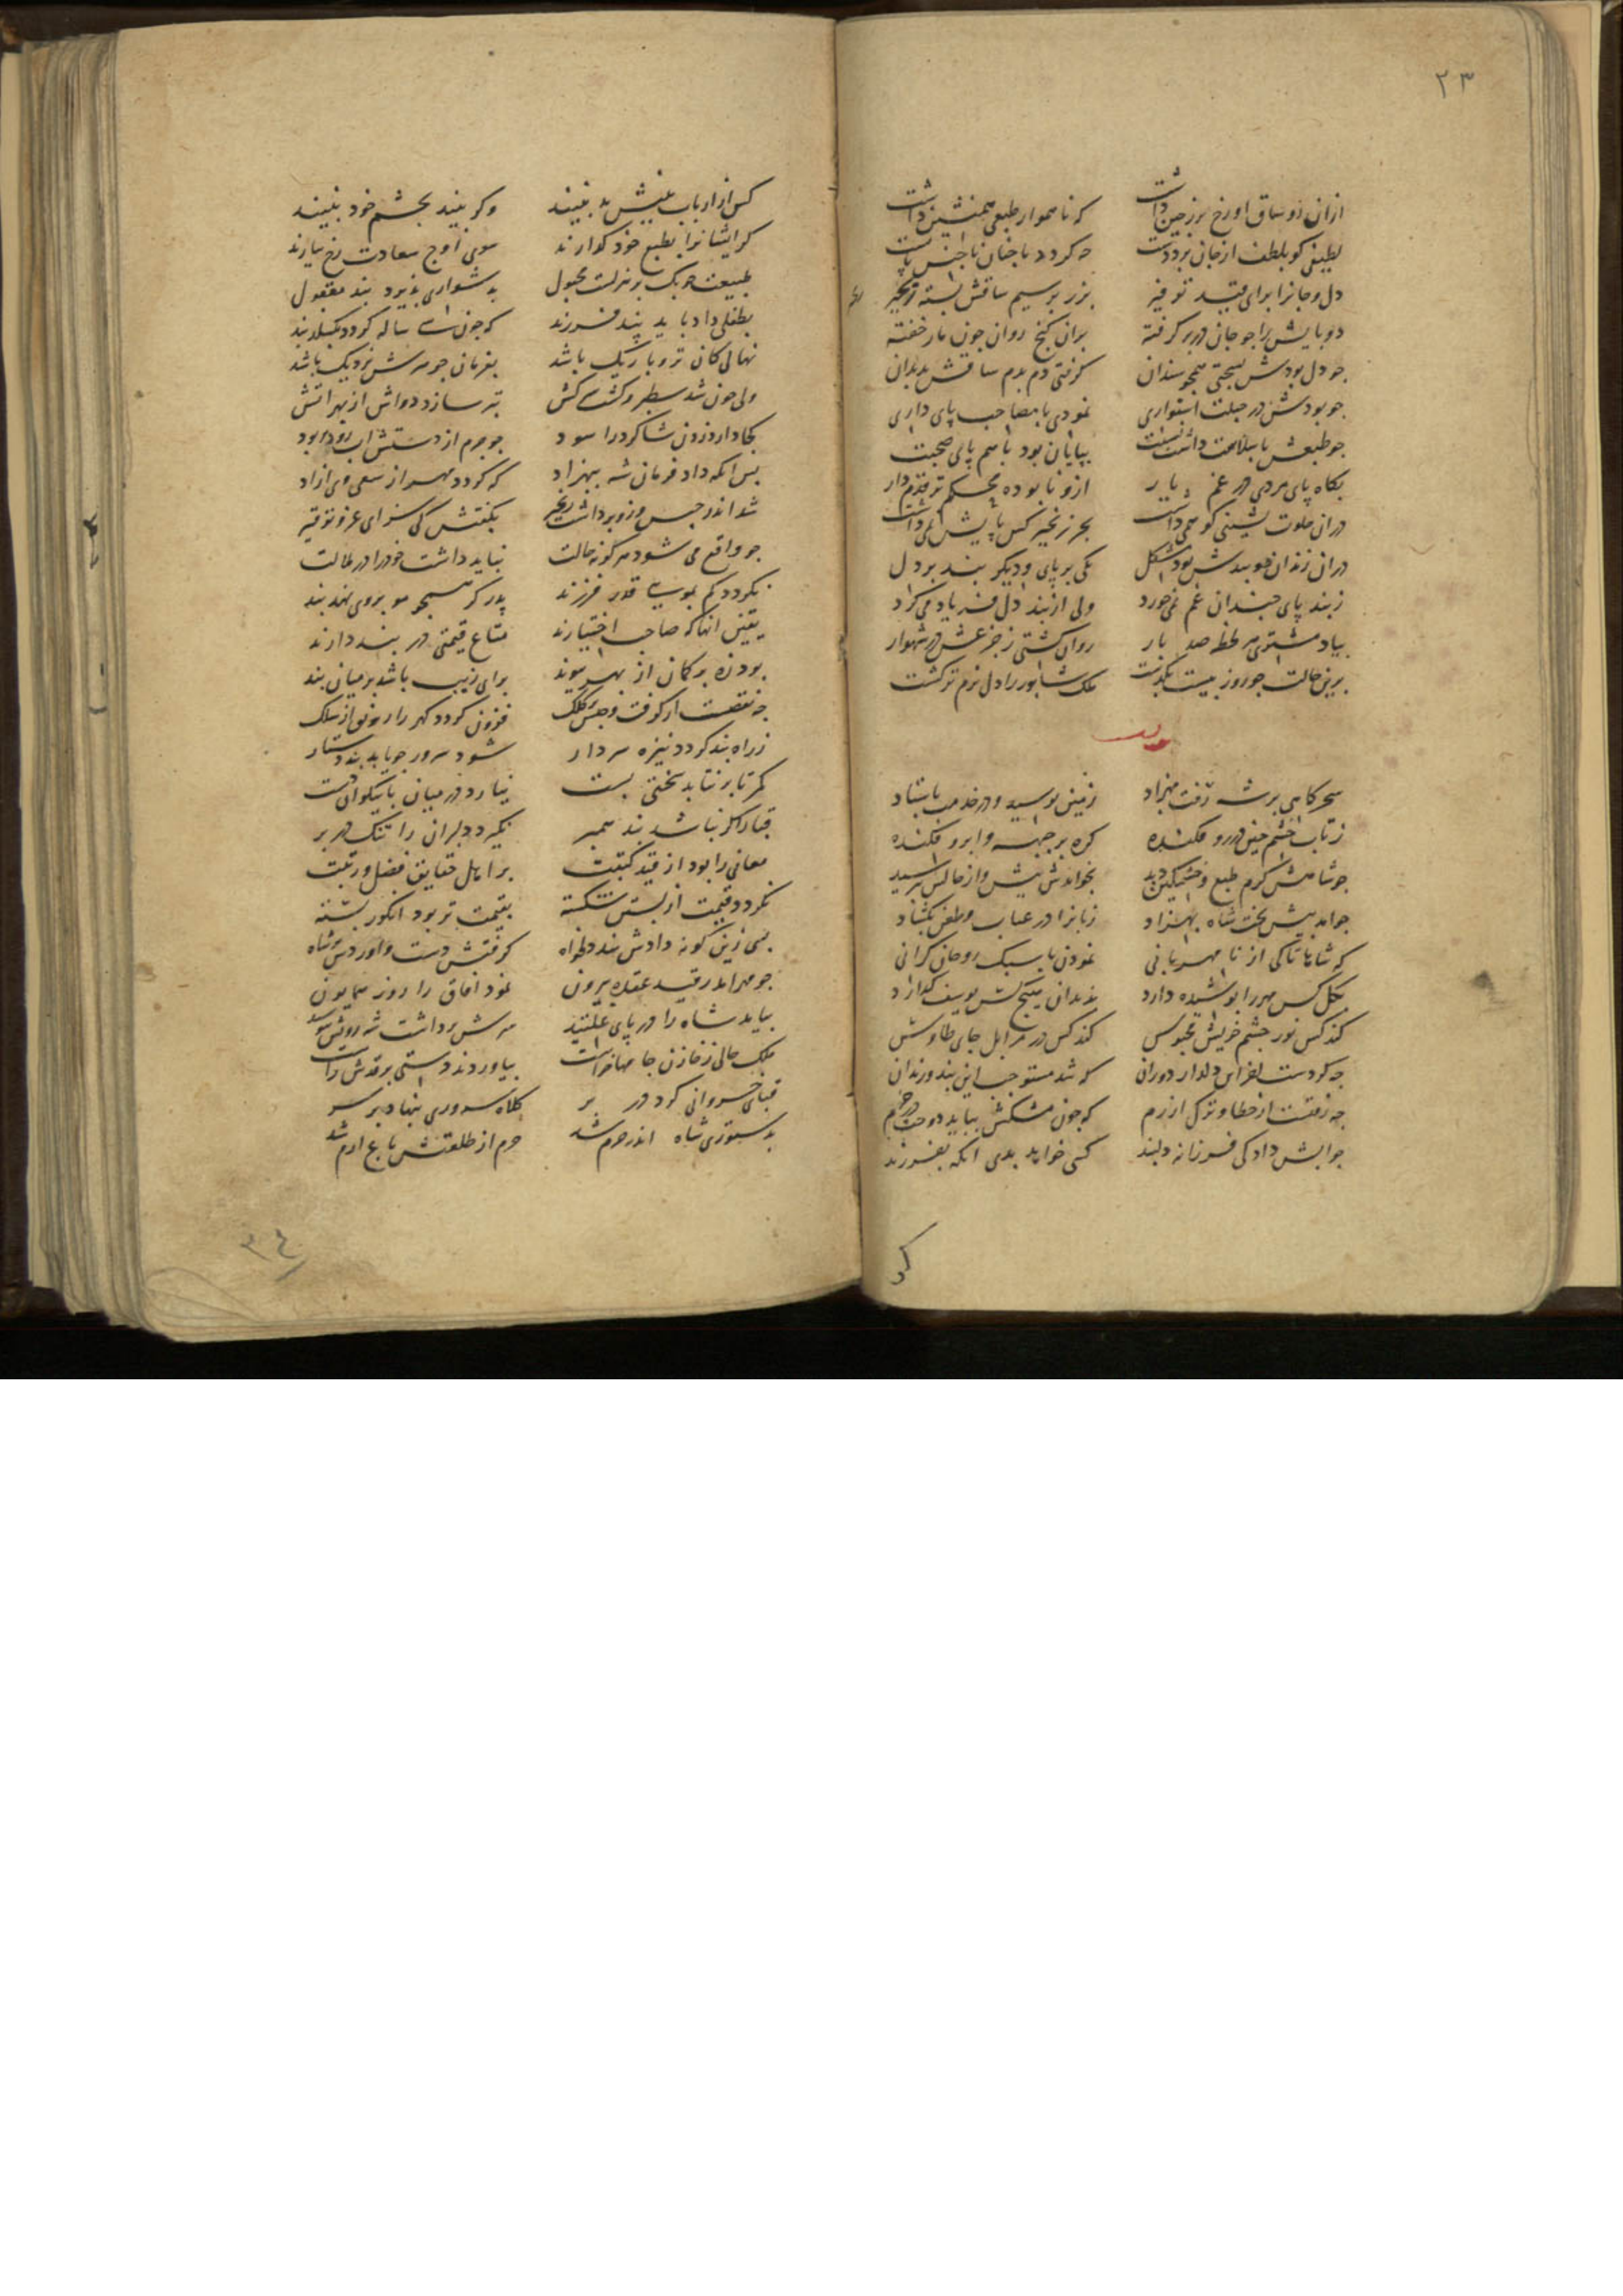 ۲۳
ازان رو ساق او رخ بر زمین داشت که ناهموار طبعی همنشین داشت
لطیفی کو بلطف از جان برد دست چه کردد با چنان ناجنس پا بست
دل و جانرا برای قید توفیر بزر بر سیم ساقش بسته زنجیر
دو پایش را جو جان در بر کرفته بران کنج روان جون مار خفته
جو دل بودش بسختی همجو سندان کرفتی دم بدم ساقش بدندان
جو بودش در جبلت استواری نمودی با مصاحب پای داری
جو طبعش با سلامت داشت نسبت بپایان بود با هم پای صحبت
بکاه پای مردی در غم یار ازو نا بوده محکم تر قدم دار
دران خلوت نشینی کو همی داشت بجز زنجیر کس پایش نمی داشت
دران زندان دو بندش بود مشکل یکی بر پای و دیکر بند بر دل
ز بند پای جندان غم نمی خورد ولی از بند دل فریاد می کرد
بیاد مشتری هر لحظه صد بار روان کشتی ز جزعش در شهوار
برین حالت جو روز بیست بکذشت ملک شابور را دل نرم تر کشت
سحرکاهی بر شه رفت بهزاد زمین بوسید و در خدمت باستاد
ز تاب خشم جین در رو فکنده کره بر جبهه و ابرو فکنده
جو شاهش کرم طبع و خشمکین دید بخواندش پیش و از حالش بپرسید
جو امد پیش تخت شاه بهزاد زبانرا در عتاب و طعن بکشاد
که شاها تا کی از نا مهربانی نمودن با سبک روحان کرانی
بکل کس مهر را پوشیده دارد بزندان هیچ کس یوسف کذارد
کند کس نور جشم خویش محبوس کند کس در مزابل جای طاوس
جه کردست اخر این دلدار دوران که شد مستوجب این بند و زندان
جه رفتست از خطا و ترکی ازرم که جون مشکش بباید دوخت در جرم
جوابش داد کی فرزانه دلبند کسی خواهد بدی انکه بفرزند
کر
کس از ارباب بینش بد نبیند وکر بیند بجشم خود نبیند
کر ایشانرا بطبع خود کذارند سوی اوج سعادت رخ نیارند
طبیعت جونک بر منزلت مجبول بدشواری پذیرد بند معقول
بطفلی داد باید پند فرزند که جون سی ساله کردد بکسلد بند
نهالی کان تر و باریک باشد بفرمان جو هرش نزدیک باشد
ولی جون شد سطبر و کشت سرکش تبر سازد دواش از بهر اتش
کجا دارد زدن شاکرد را سود جو جرم از دستش اب رو بود
پس انکه داد فرمان شه ببهزاد که کردد مهر از سعی وی ازاد
شد اندر حبس و زو برداشت زنجیر بکفتش کی سزای عز و توقیر
جو واقع می شود هر کونه حالت نباید داشت خود را در ملالت
نکردد کم بموی قدر فرزند پدر کر همجو مو بروی نهد بند
یقین انها که صاحب اختیارند متاع قیمتی در بند دارند
بود زه بر کمان از بهر پیوند برای زیب باشد بر میان بند
جه نقصست ار کرفت و حبس کلک فزون کردد کهر را رونق از سلک
ز راه بند کردد نیزه سردار شود سرور جو یابد بند دستار
کمر تا بر نتابد سختی بست نیارد در میان با نیکوان دست
قبا را کر نباشد بند همبر نکیرد دلبران را تنک در بر
معانی را بود از قید کتبت بر اهل حقایق فضل و رتبت
نکردد قیمت از بستن شکسته بقیمت تر بود انکور بسته
بسی زین کونه دادش پند دلخواه کرفتش دست و اوردش بر شاه
جو مهر امد ز قید عقده بیرون نمود افاق را روز همایون
بیامد شاه را در پای غلتید سرش برداشت شه رویش ببوسید
ملک حالی ز خازن جامها خواست بیاوردند دستی بر قدش راست
قبای خسروانی کرد در بر کلاه سروری بنهاد بر سر
بدستوری شاه اندر حرم شد حرم از طلعتش باغ ارم شد
۳۴